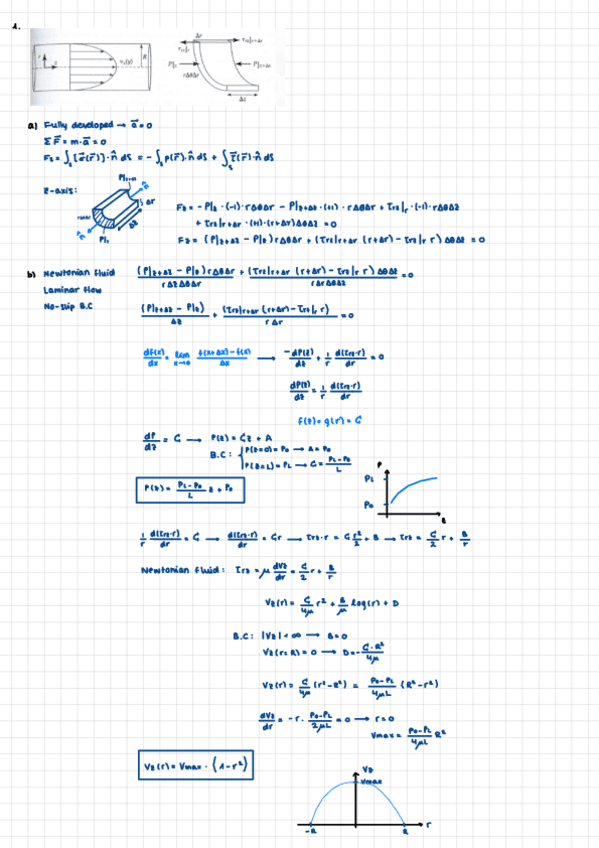 1.
Δr
R
r
z
v_z(r)
τ_rz|_r
τ_rz|_r+Δr
P|_z
P|_z+Δz
rΔθΔr
Δz
a) Fully developed → a⃗ = 0
Σ F⃗ = m·a⃗ = 0
F_s = ∫_s [σ⃗(r⃗)]·n̂ dS = -∫_s p(r⃗)·n̂ dS + ∫_s τ⃗(r⃗)·n̂ dS
z-axis:
P|_z+Δz
Δr
Δz
P|_z
F_z = -P|_z·(-1)·rΔθΔr - P|_z+Δz·(+1)·rΔθΔr + τ_rz|_r·(-1)·rΔθΔz
+ τ_rz|_r+Δr·(+1)·(r+Δr)ΔθΔz = 0
F_z = (P|_z+Δz - P|_z) rΔθΔr + (τ_rz|_r+Δr (r+Δr) - τ_rz|_r r) ΔθΔz = 0
b) Newtonian Fluid (P|_z+Δz - P|_z) rΔθΔr / rΔzΔθΔr + (τ_rz|_r+Δr (r+Δr) - τ_rz|_r r) ΔθΔz / rΔrΔθΔz = 0
Laminar Flow
No-slip B.C (P|_z+Δz - P|_z) / Δz + (τ_rz|_r+Δr (r+Δr) - τ_rz|_r r) / rΔr = 0
df(x)/dx = lim x→0 f(x+Δx)-f(x) / Δx → -dP(z)/dz + 1/r d(τ_rz·r)/dr = 0
dP(z)/dz = 1/r d(τ_rz·r)/dr
f(z) = g(r) = C
dP/dz = C → P(z) = Cz + A
B.C: { P(z=0) = P₀ → A = P₀
P(z=L) = P_L → C = P_L-P₀ / L
P(z) = P_L-P₀ / L z + P₀
P
P_L
P₀
z
1/r d(τ_rz·r)/dr = C → d(τ_rz·r)/dr = Cr → τ_rz·r = C r²/2 + B → τ_rz = C/2 r + B/r
Newtonian Fluid: τ_rz = μ dV_z/dr = C/2 r + B/r
V_z(r) = C/4μ r² + B/μ log(r) + D
B.C: |V_z| < ∞ → B = 0
V_z(r=R) = 0 → D = -C·R²/4μ
V_z(r) = C/4μ (r²-R²) = P₀-P_L / 4μL (R²-r²)
dV_z/dr = -r · P₀-P_L / 2μL = 0 → r = 0
V_max = P₀-P_L / 4μL R²
V_z(r) = V_max · (1-r²)
V_z
V_max
-R
R
r